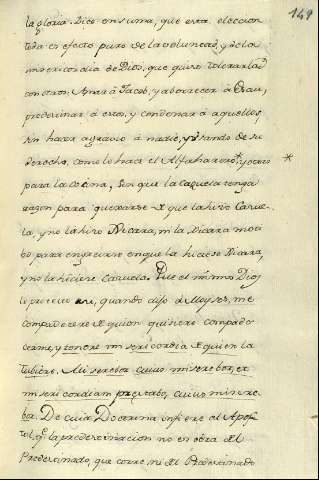 149
la gloria. Dice en suma, que esta eleccion
toda es efecto puro de la voluntad, y de la
misericordia de Dios, que quiso
con otros. Amar à Jacob, y aborrecer à Esau,
predestinar à estos, y condenar à aquellos
sin hazer agravio à nadie, usando de su
derecho, como lo hace el Alfaharero, y otro *
para la cocina, sin que la cazuela tenga
razon para quexarse de que la hizo Cazue-
la, y no la hizo Xicara, ni la Xicara moti-
bo para engreirse en que la hiciese Xicara,
y no la hiciere Cazuela. Que el mismo Dios
lo protexto asi, quando dijo à Moyses, me
compadecere de quien quisiere compade-
cerme, y tendre misericordia de quien la
tubiere. Miserebor cuius misereor, et
misericordiam prestabo, cuius misere-
bor. De cuia Doctrina infiere el Apos-
tol q.e la predestinacion no es obra del
Predestinado, que corre, ni del Predestinado